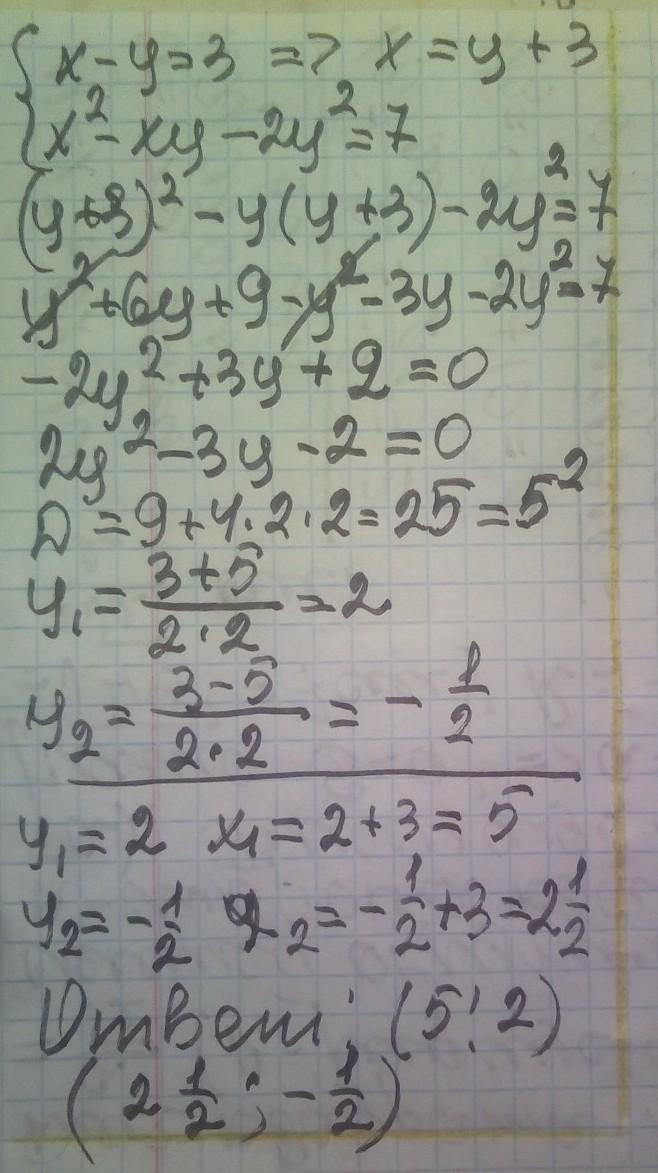 { x - y = 3 => x = y + 3
x² - xy - 2y² = 7
(y+3)² - y(y+3) - 2y² = 7
y² + 6y + 9 - y² - 3y - 2y² = 7
-2y² + 3y + 2 = 0
2y² - 3y - 2 = 0
D = 9 + 4·2·2 = 25 = 5²
y₁ = (3+5)/(2·2) = 2
y₂ = (3-5)/(2·2) = - 1/2
y₁ = 2 x₁ = 2 + 3 = 5
y₂ = -1/2 x₂ = -1/2 + 3 = 2 1/2
Ответ: (5; 2)
(2 1/2; - 1/2)